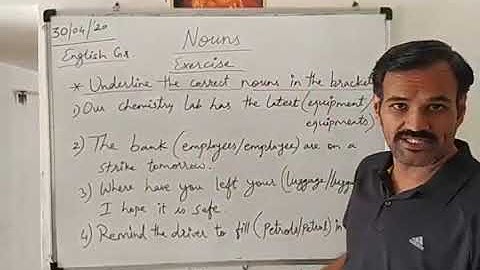 30/04/20
Nouns
English Gr
Exercise
* Underline the correct nouns in the bracket
1) Our chemistry lab has the latest (equipment/
equipments)
2) The bank (employees/employee) are on a
strike tomorrow.
3) Where have you left your (luggage/
I hope it is safe.
4) Remind the driver to fill (petrols/petrol) in
adidas